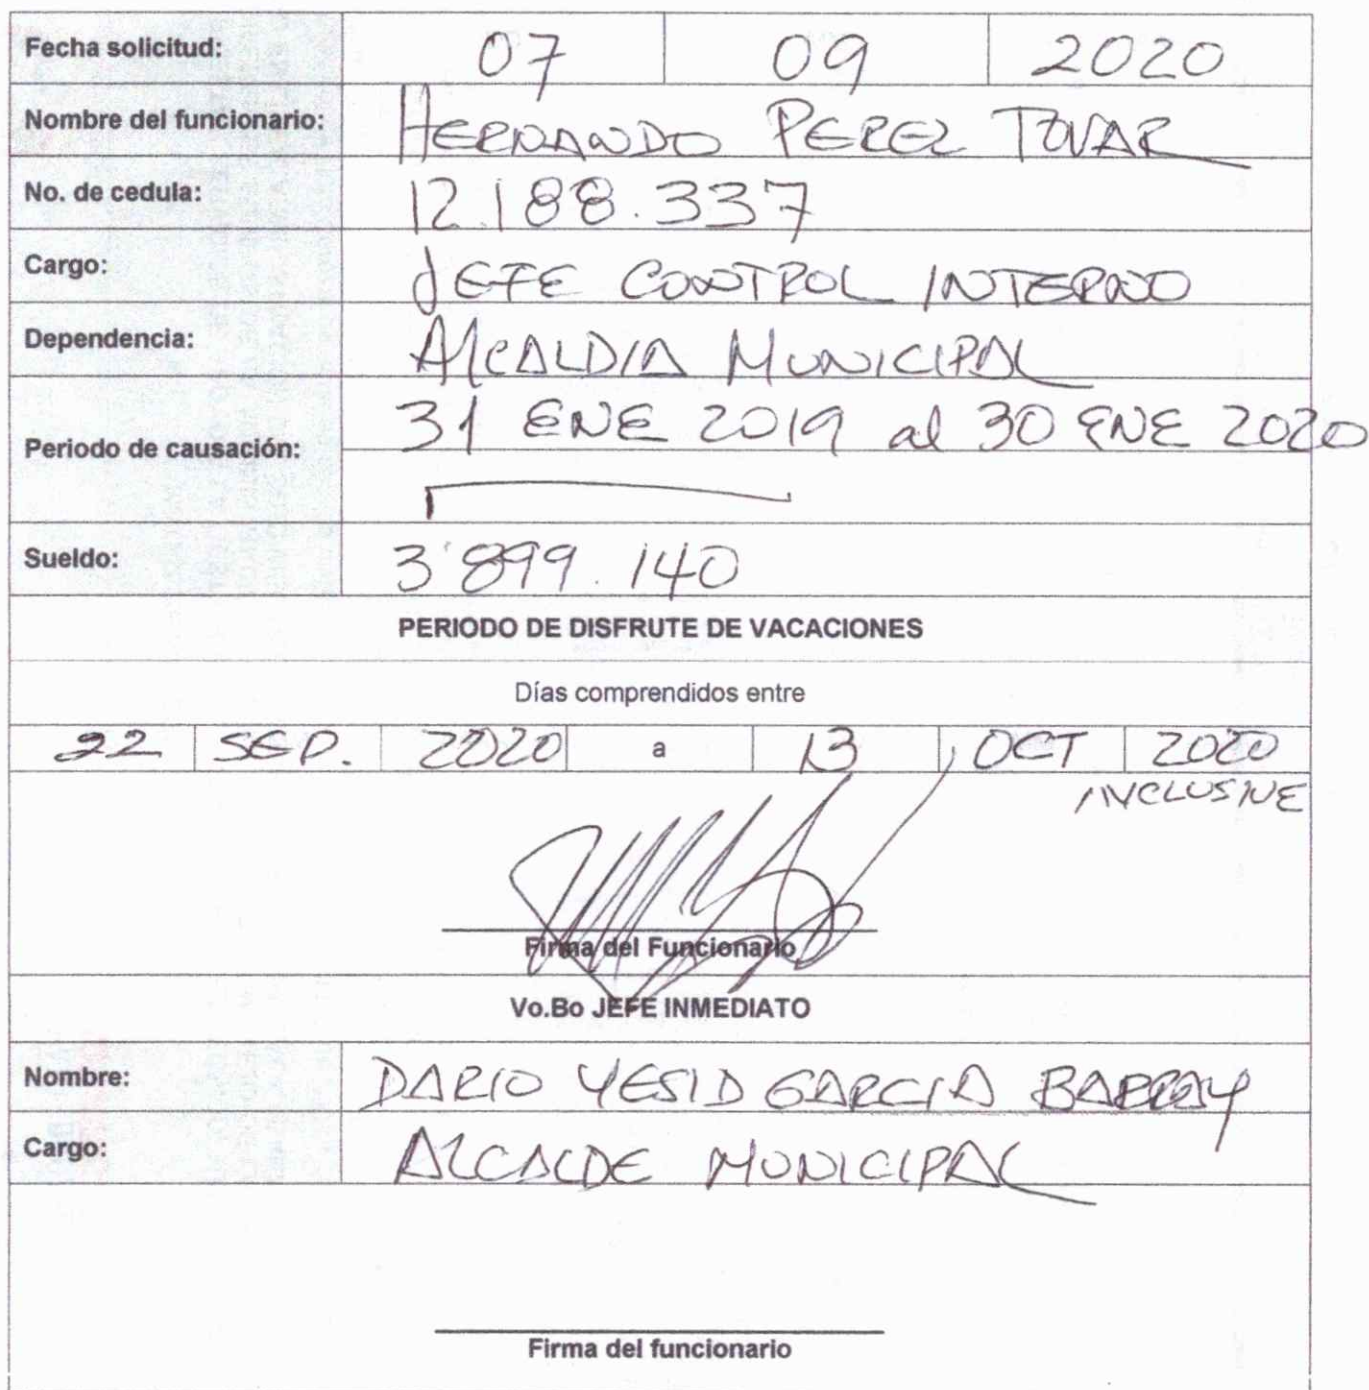 Fecha solicitud: 07 09 2020
Nombre del funcionario: HERNANDO PEREZ TOVAR
No. de cedula: 12.188.337
Cargo: JEFE CONTROL INTERNO
Dependencia: AlCALDIA MUNICIPAL
Periodo de causación: 31 ENE 2019 al 30 ENE 2020
Sueldo: 3'899.140
PERIODO DE DISFRUTE DE VACACIONES
Días comprendidos entre
22 SEP. 2020 a 13 OCT 2020
INCLUSIVE
Firma del Funcionario
Vo.Bo JEFE INMEDIATO
Nombre: DARIO YESID GARCIA
Cargo: ALCALDE MUNICIPAL
Firma del funcionario